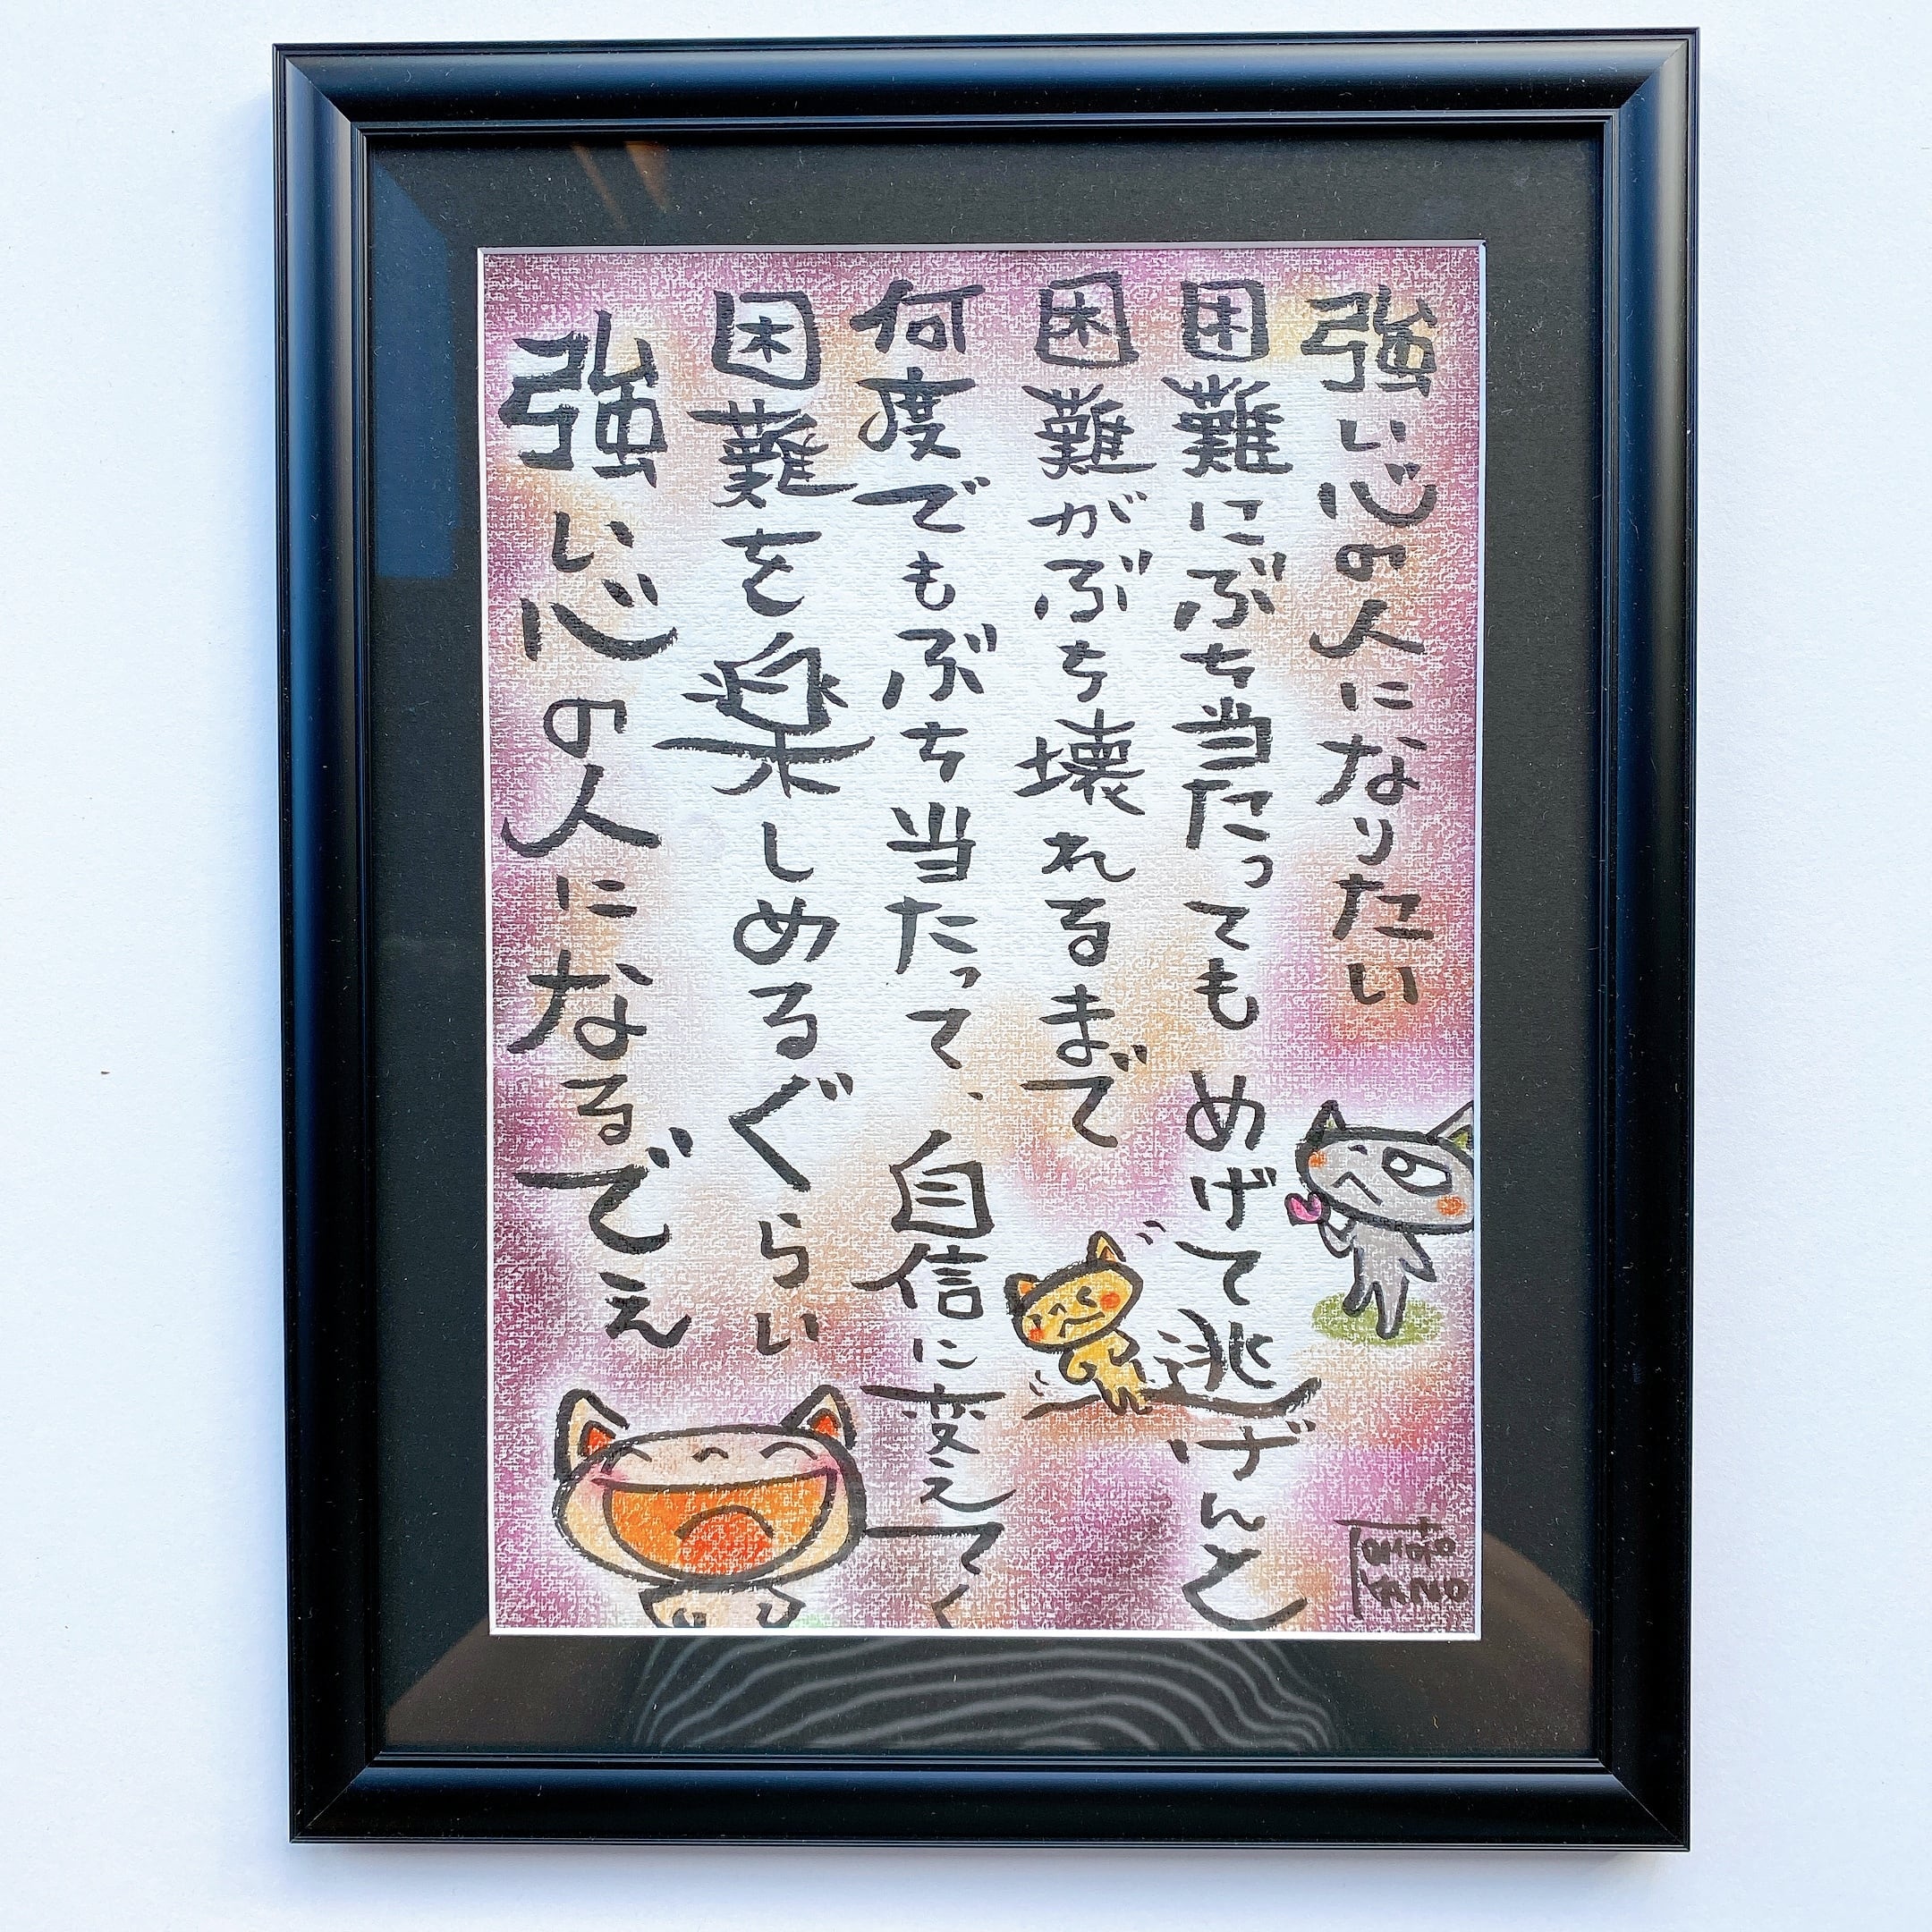 強い心の人になりたい
困難にぶち当たっても めげて逃げんと
困難がぶち壊れるまで
何度でもぶち当たって、自信に変えてく
困難を楽しめるぐらい
強い心の人になるでえ